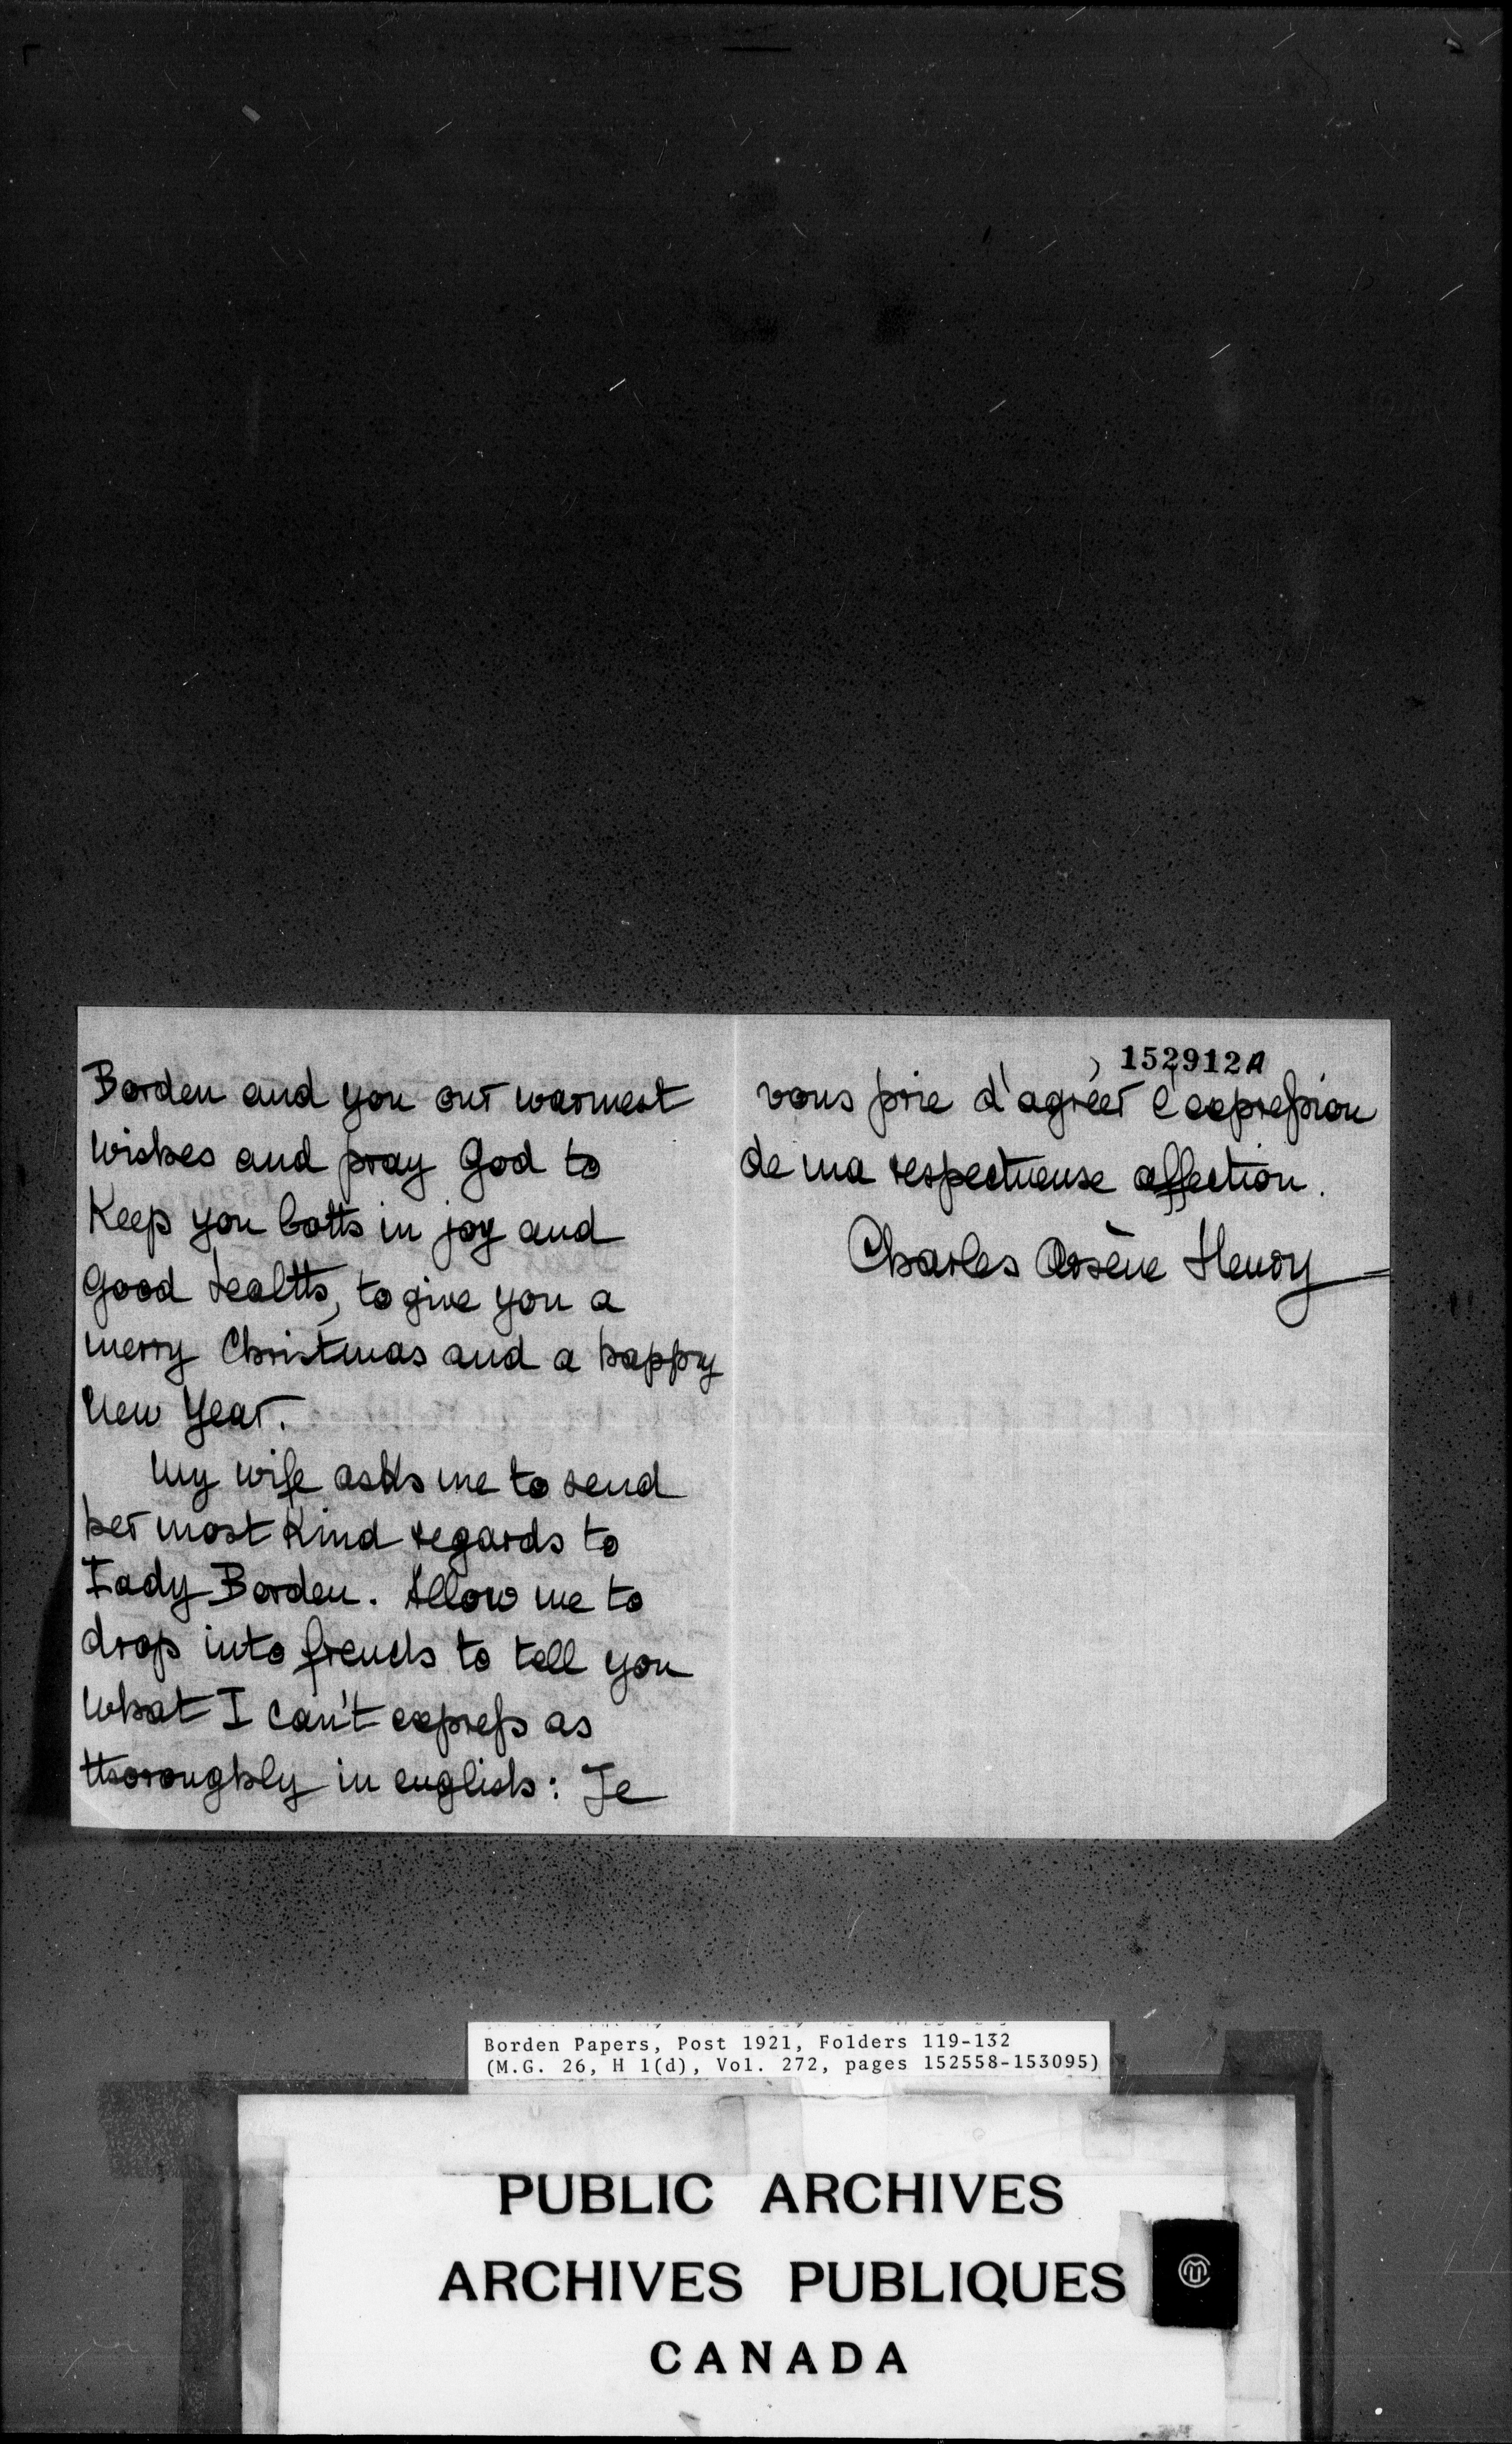 Borden and you our warmest
wishes and pray God to
Keep you both in joy and
good health, to give you a
merry Christmas and a happy
New Year.
My wife asks me to send
her most Kind regards to
Lady Borden. Allow me to
drop into french to tell you
what I can't express as
thoroughly in english: Je
152912A
vous prie d'agréer l'expression
de ma respectueuse affection.
Charles Arsène Henry
Borden Papers, Post 1921, Folders 119-132
(M.G. 26, H 1(d), Vol. 272, pages 152558-153095)
PUBLIC ARCHIVES
ARCHIVES PUBLIQUES
CANADA